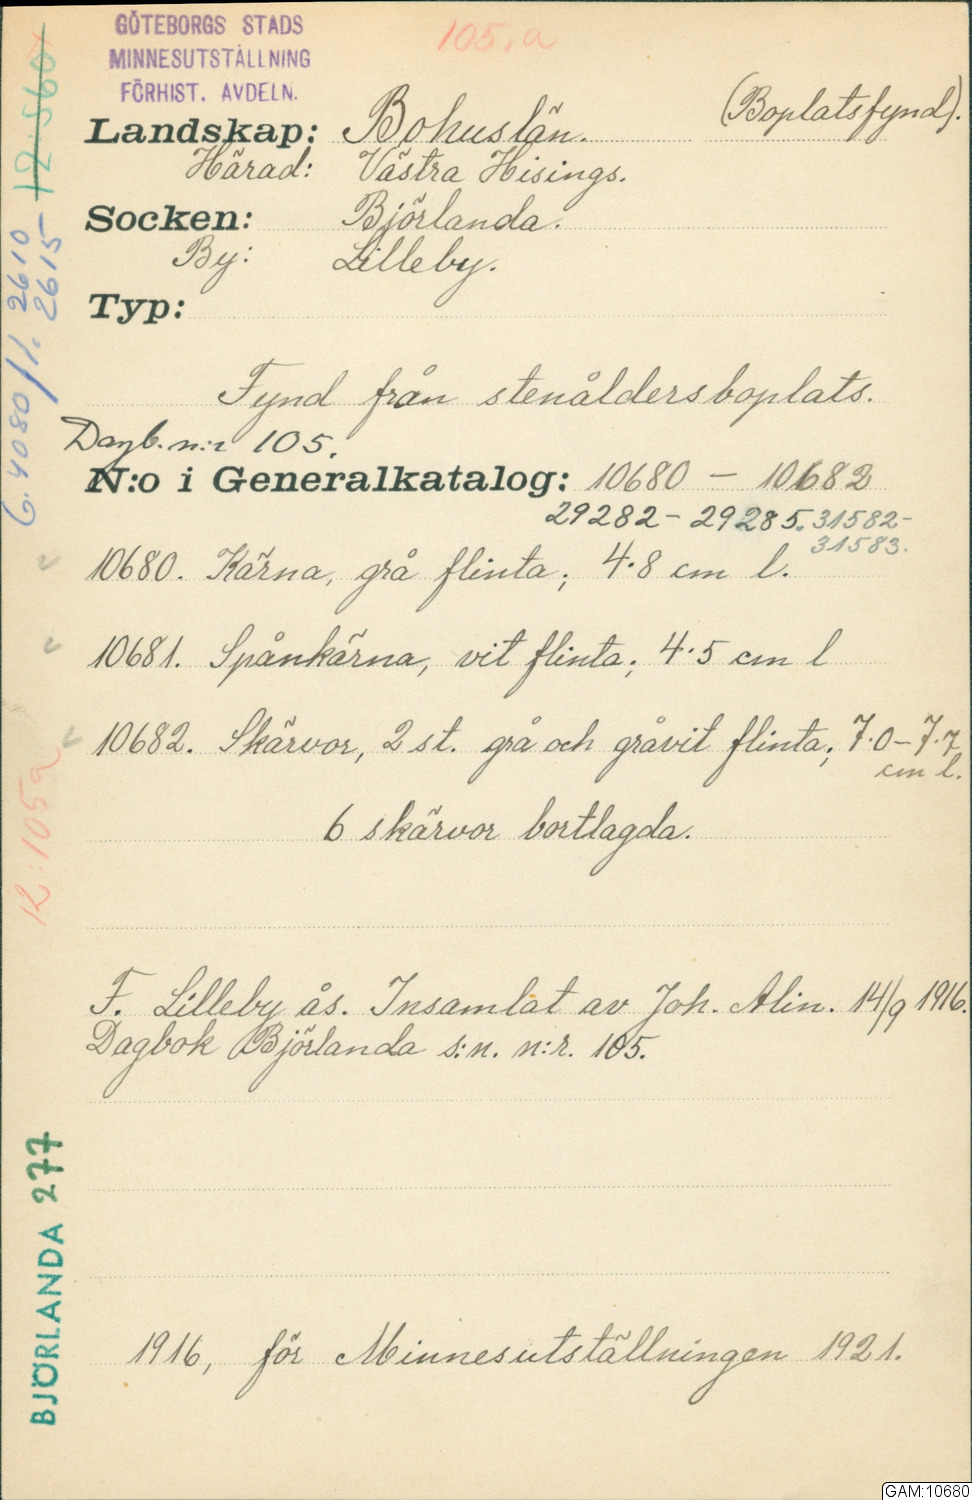 GÖTEBORGS STADS
MINNESUTSTÄLLNING
FÖRHIST. AVDELN.
105.a
Landskap: Bohuslän. (Boplatsfynd).
Härad: Västra Hisings.
Socken: Björlanda.
By: Lilleby.
Typ:
Fynd från stenåldersboplats.
Dagb. n:r 105.
N:o i Generalkatalog: 10680 – 10682
29282 – 29285. 31582-
31583.
10680. Kärna, grå flinta; 4.8 cm l.
10681. Spånkärna, vit flinta; 4.5 cm l
10682. Skärvor, 2 st. grå och gråvit flinta; 7.0–7.7
cm l.
6 skärvor bortlagda.
F. Lilleby ås. Insamlat av Joh. Alin. 14/9 1916.
Dagbok Björlanda s:n. n:r. 105.
1916, för Minnesutställningen 1921.
2610
2615-
K:105a
BJÖRLANDA 277
GAM:10680